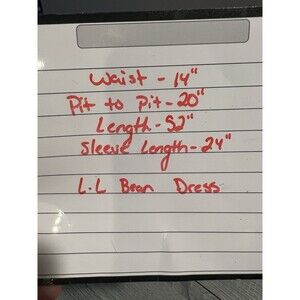 Waist - 14"
Pit to Pit - 20"
Length - 52"
Sleeve Length - 24"
L.L Bean Dress